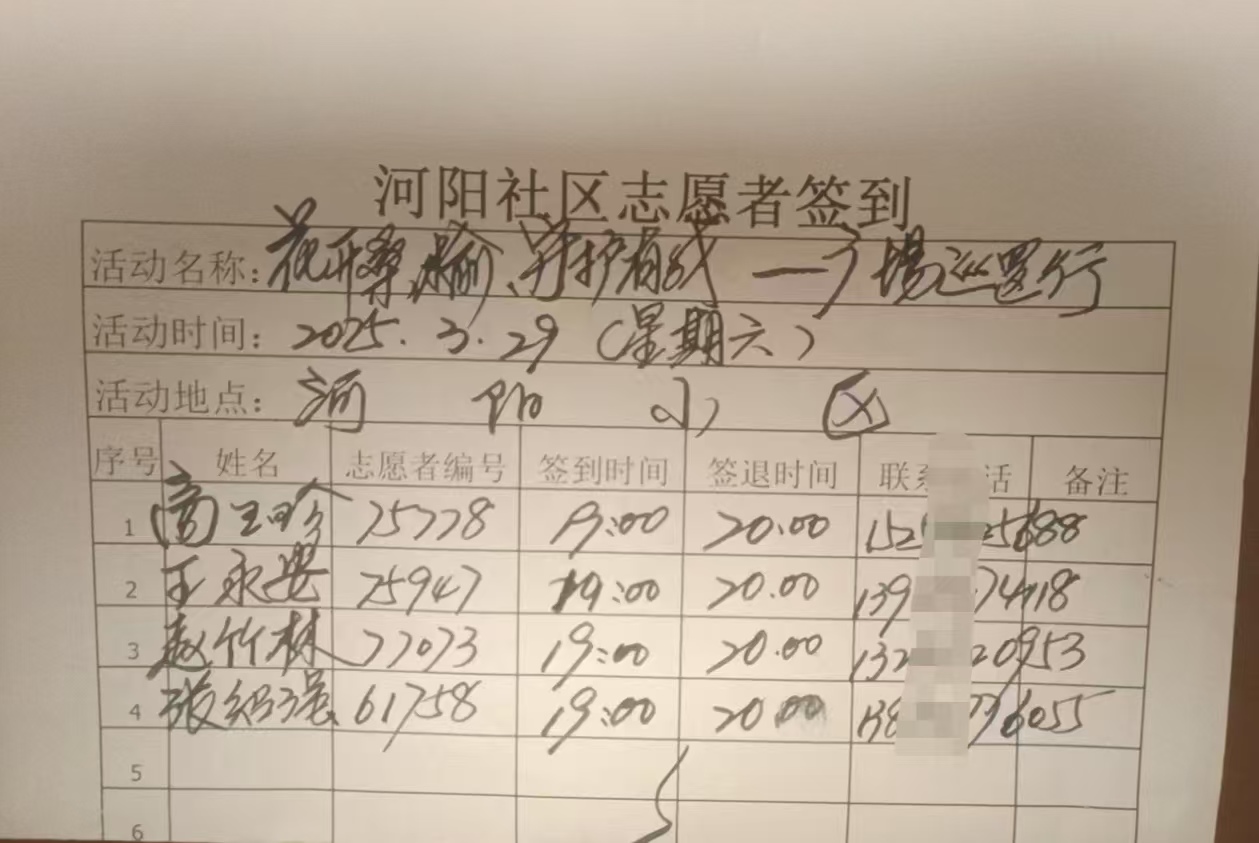 河阳社区志愿者签到
活动名称：花开桑榆、守护有我 — 广场巡逻行
活动时间：2025.3.29（星期六）
活动地点：河阳小区
序号 姓名 志愿者编号 签到时间 签退时间 联系 话 备注
1 商玉珍 75778 19:00 20.00 152 25688
2 王永安 75947 19:00 20.00 139 74718
3 赵竹林 77073 19:00 20.00 132 20953
4 张绍强 61758 19:00 20.00 138 6055
5
6